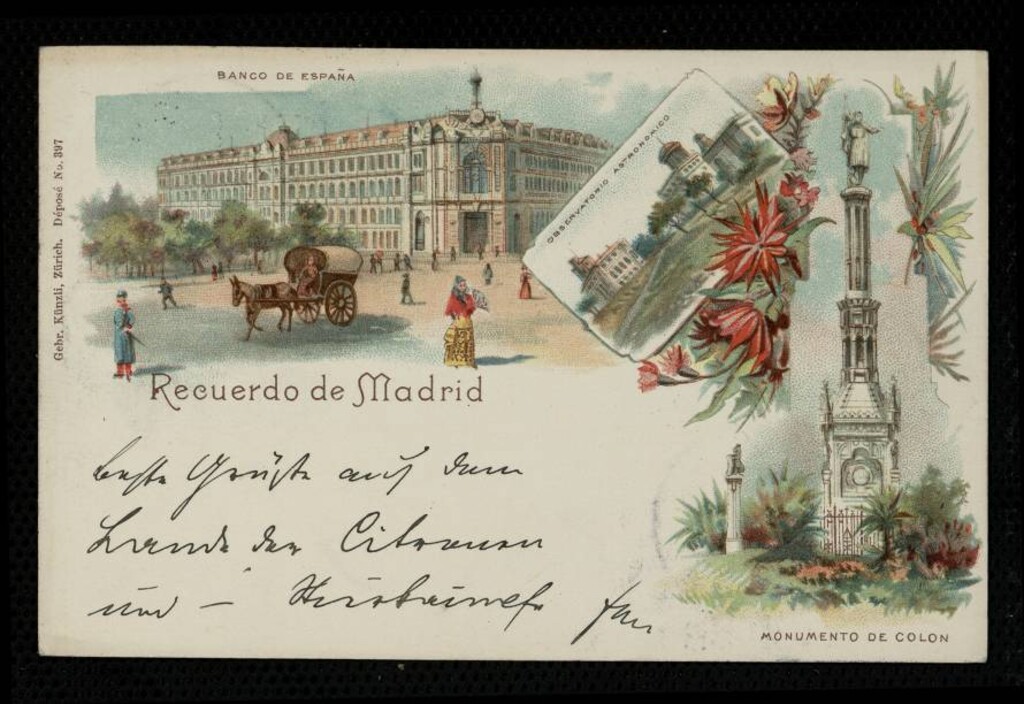 BANCO DE ESPAÑA
Gebr. Künzli, Zürich. Déposé No. 397
OBSERVATORIO ASTRONOMICO
Recuerdo de Madrid
beste Grüße auf dem
Lande der Citronen
und –
MONUMENTO DE COLON